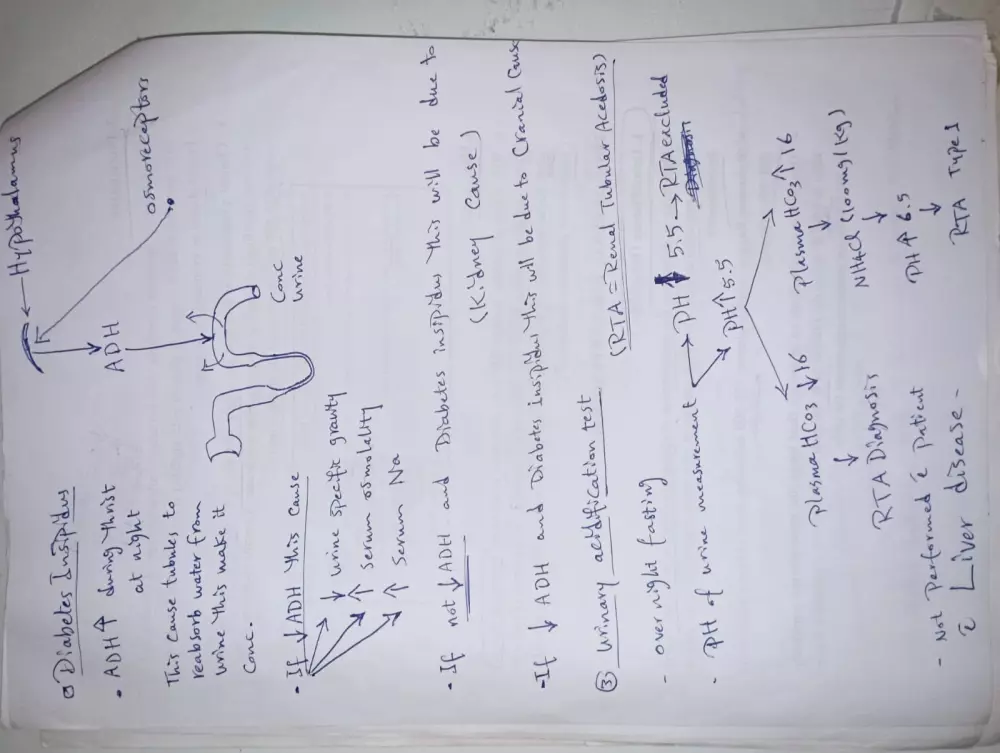 Diabetes Insipidus
← Hypothalamus
• ADH ↑ during thrist
at night
ADH
osmoreceptors
This cause tubules to
reabsorb water from
urine this make it
Conc.
Conc
urine
• If ↓ ADH this cause
↓ urine specific gravity
↑ Serum osmolality
↑ Serum Na
• If not ↓ ADH and Diabetes insipidus this will be due to
(Kidney Cause)
- If ↓ ADH and Diabetes Insipidus this will be due to Cranial Cause
③ Urinary acidification test (RTA = Renal Tubular Acedosis)
- over night fasting
- PH of urine measurement → PH 5.5 → RTA excluded
PH ↑ 5.5
Plasma HCO3 ↓ 16
Plasma HCO3 ↑ 16
↓
RTA Diagnosis
↓
NH4Cl (100mg/kg)
↓
PH ↑ 6.5
↓
RTA Type 1
- Not Performed c̄ Patient
c̄ Liver disease -